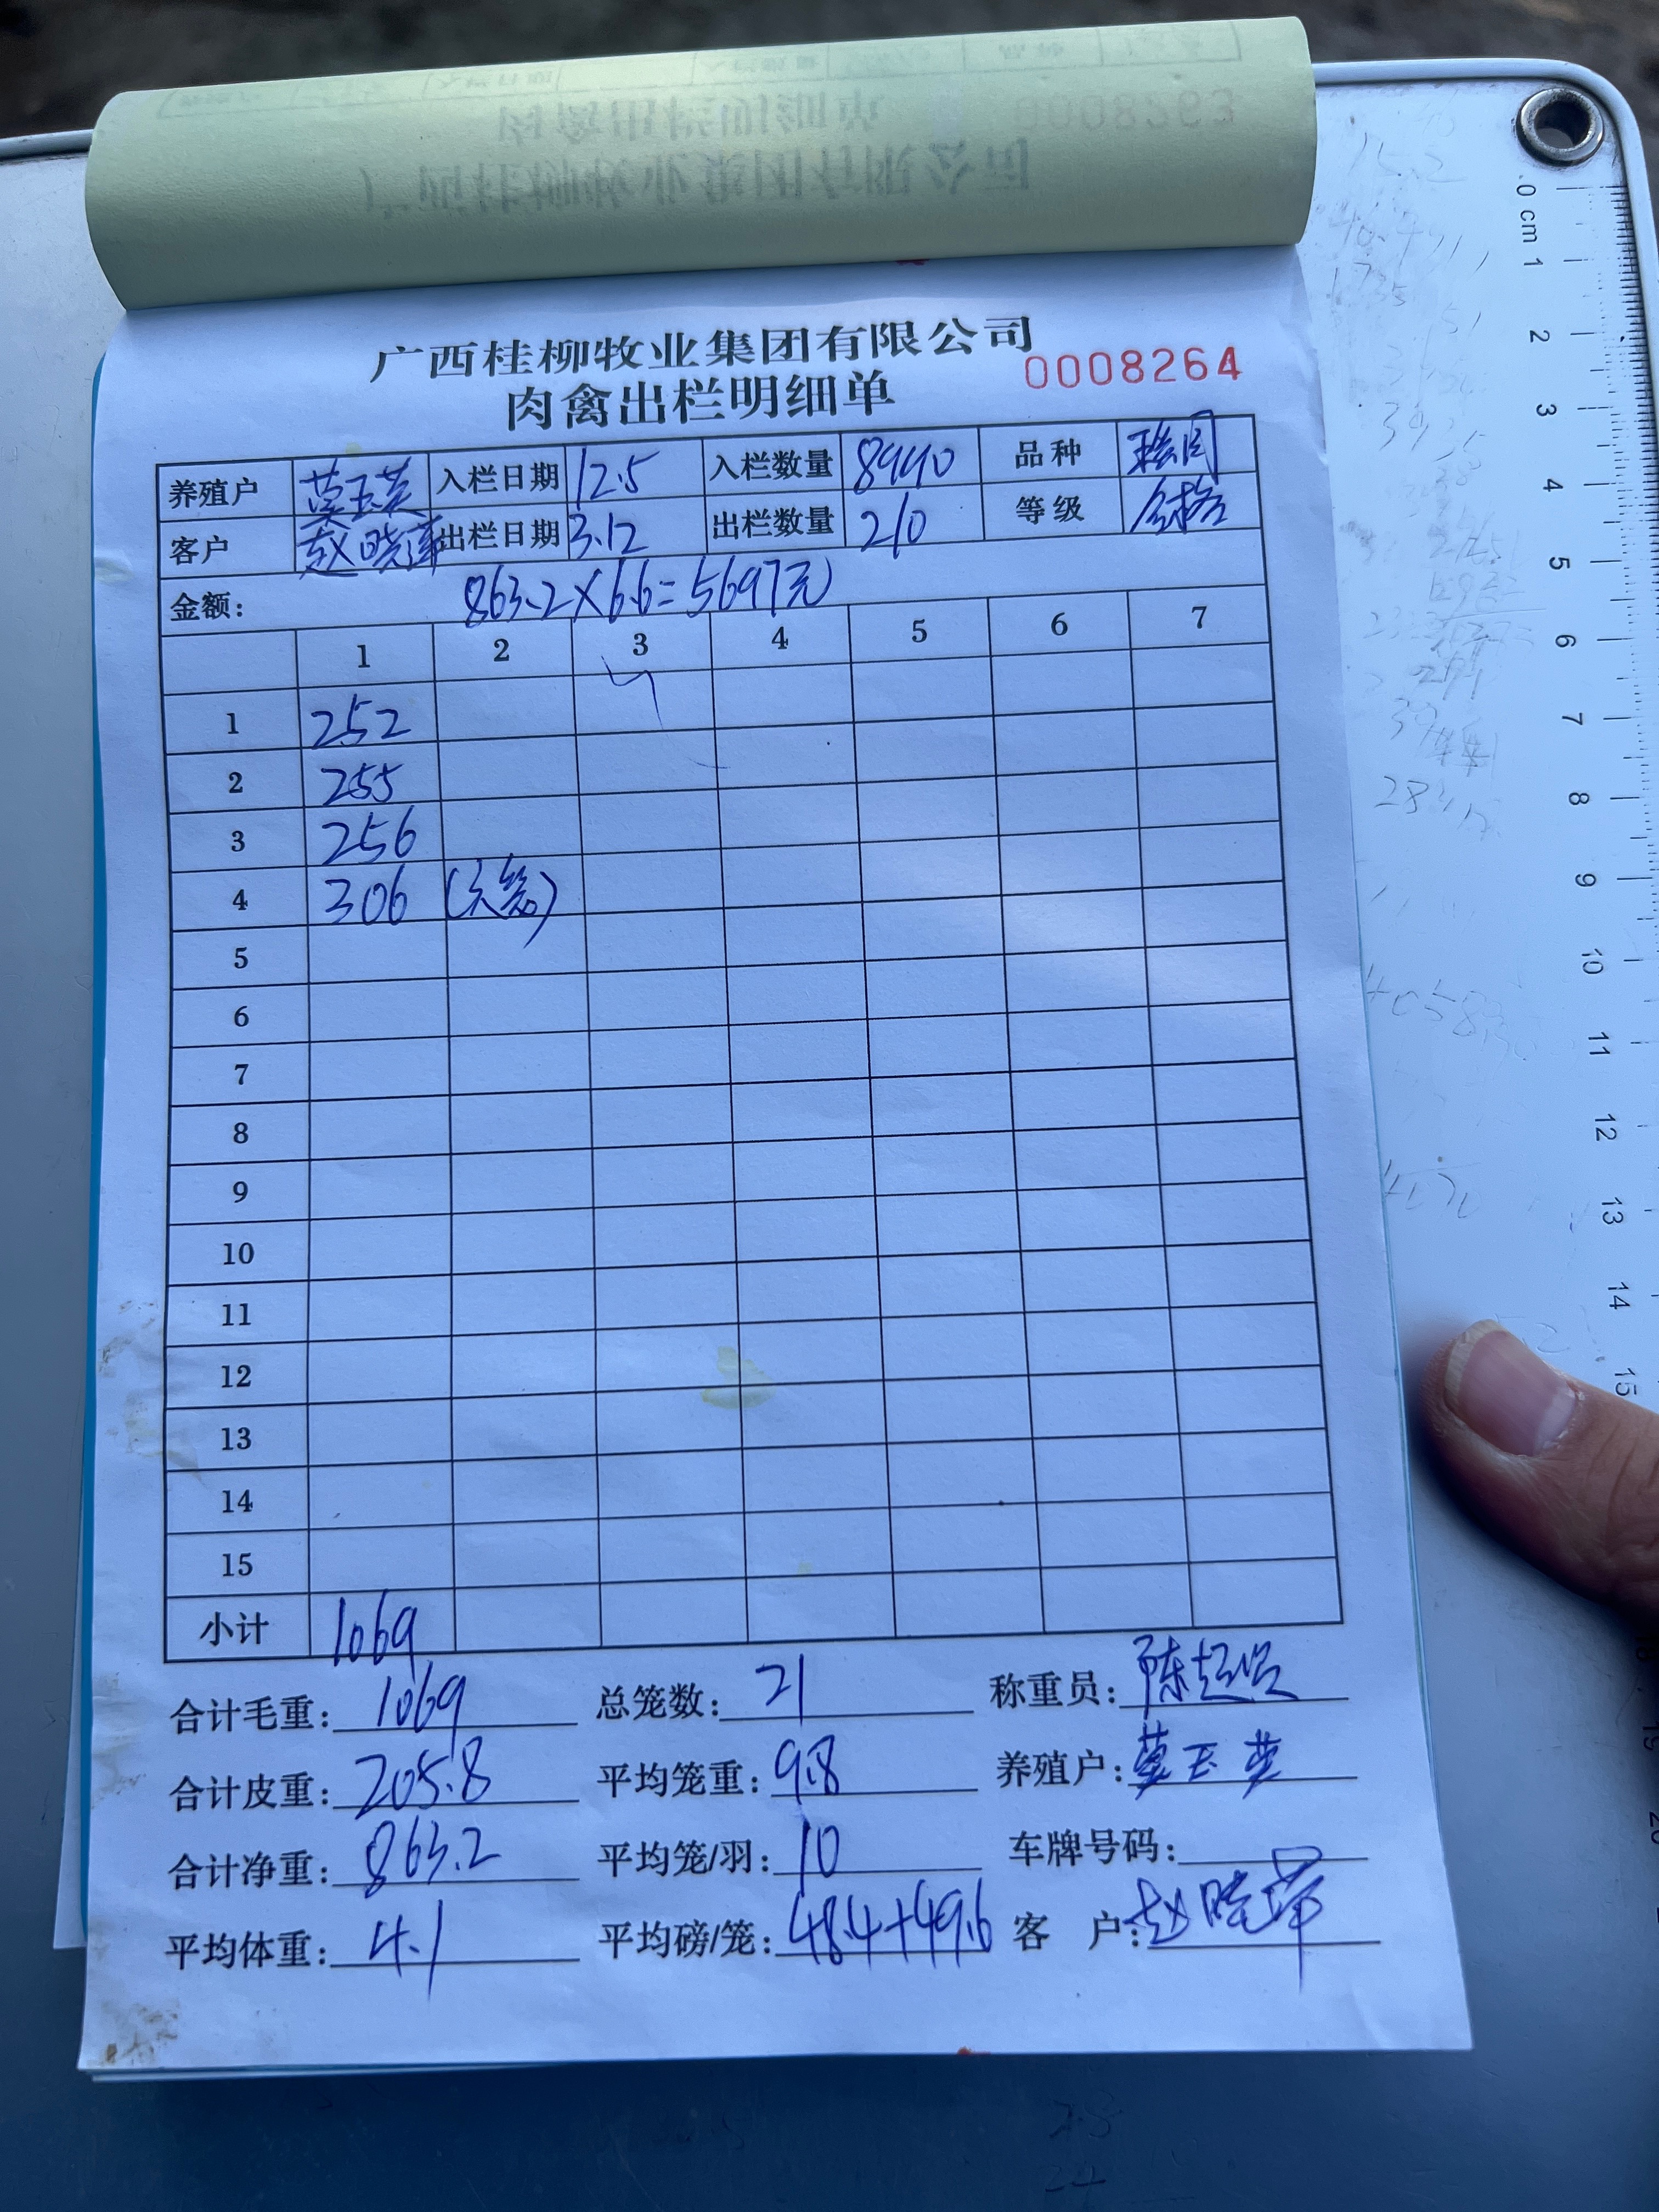 广西桂柳牧业集团有限公司
肉禽出栏明细单 0008264
养殖户 莫玉英 入栏日期 12.5 入栏数量 8990 品种
客户 赵晓萍 出栏日期 3.12 出栏数量 210 等级 合格
金额: 863.2×6.6=5697元
1 2 3 4 5 6 7
1 252
2 255
3 256
4 306
5
6
7
8
9
10
11
12
13
14
15
小计 1069
合计毛重: 1069 总笼数: 21 称重员: 陈
合计皮重: 205.8 平均笼重: 9.8 养殖户: 莫玉英
合计净重: 863.2 平均笼/羽: 10 车牌号码:
平均体重: 4.1 平均磅/笼: 48.4+49.6 客 户: 赵晓萍
0 cm 1
2
3
4
5
6
7
8
9
10
11
12
13
14
15